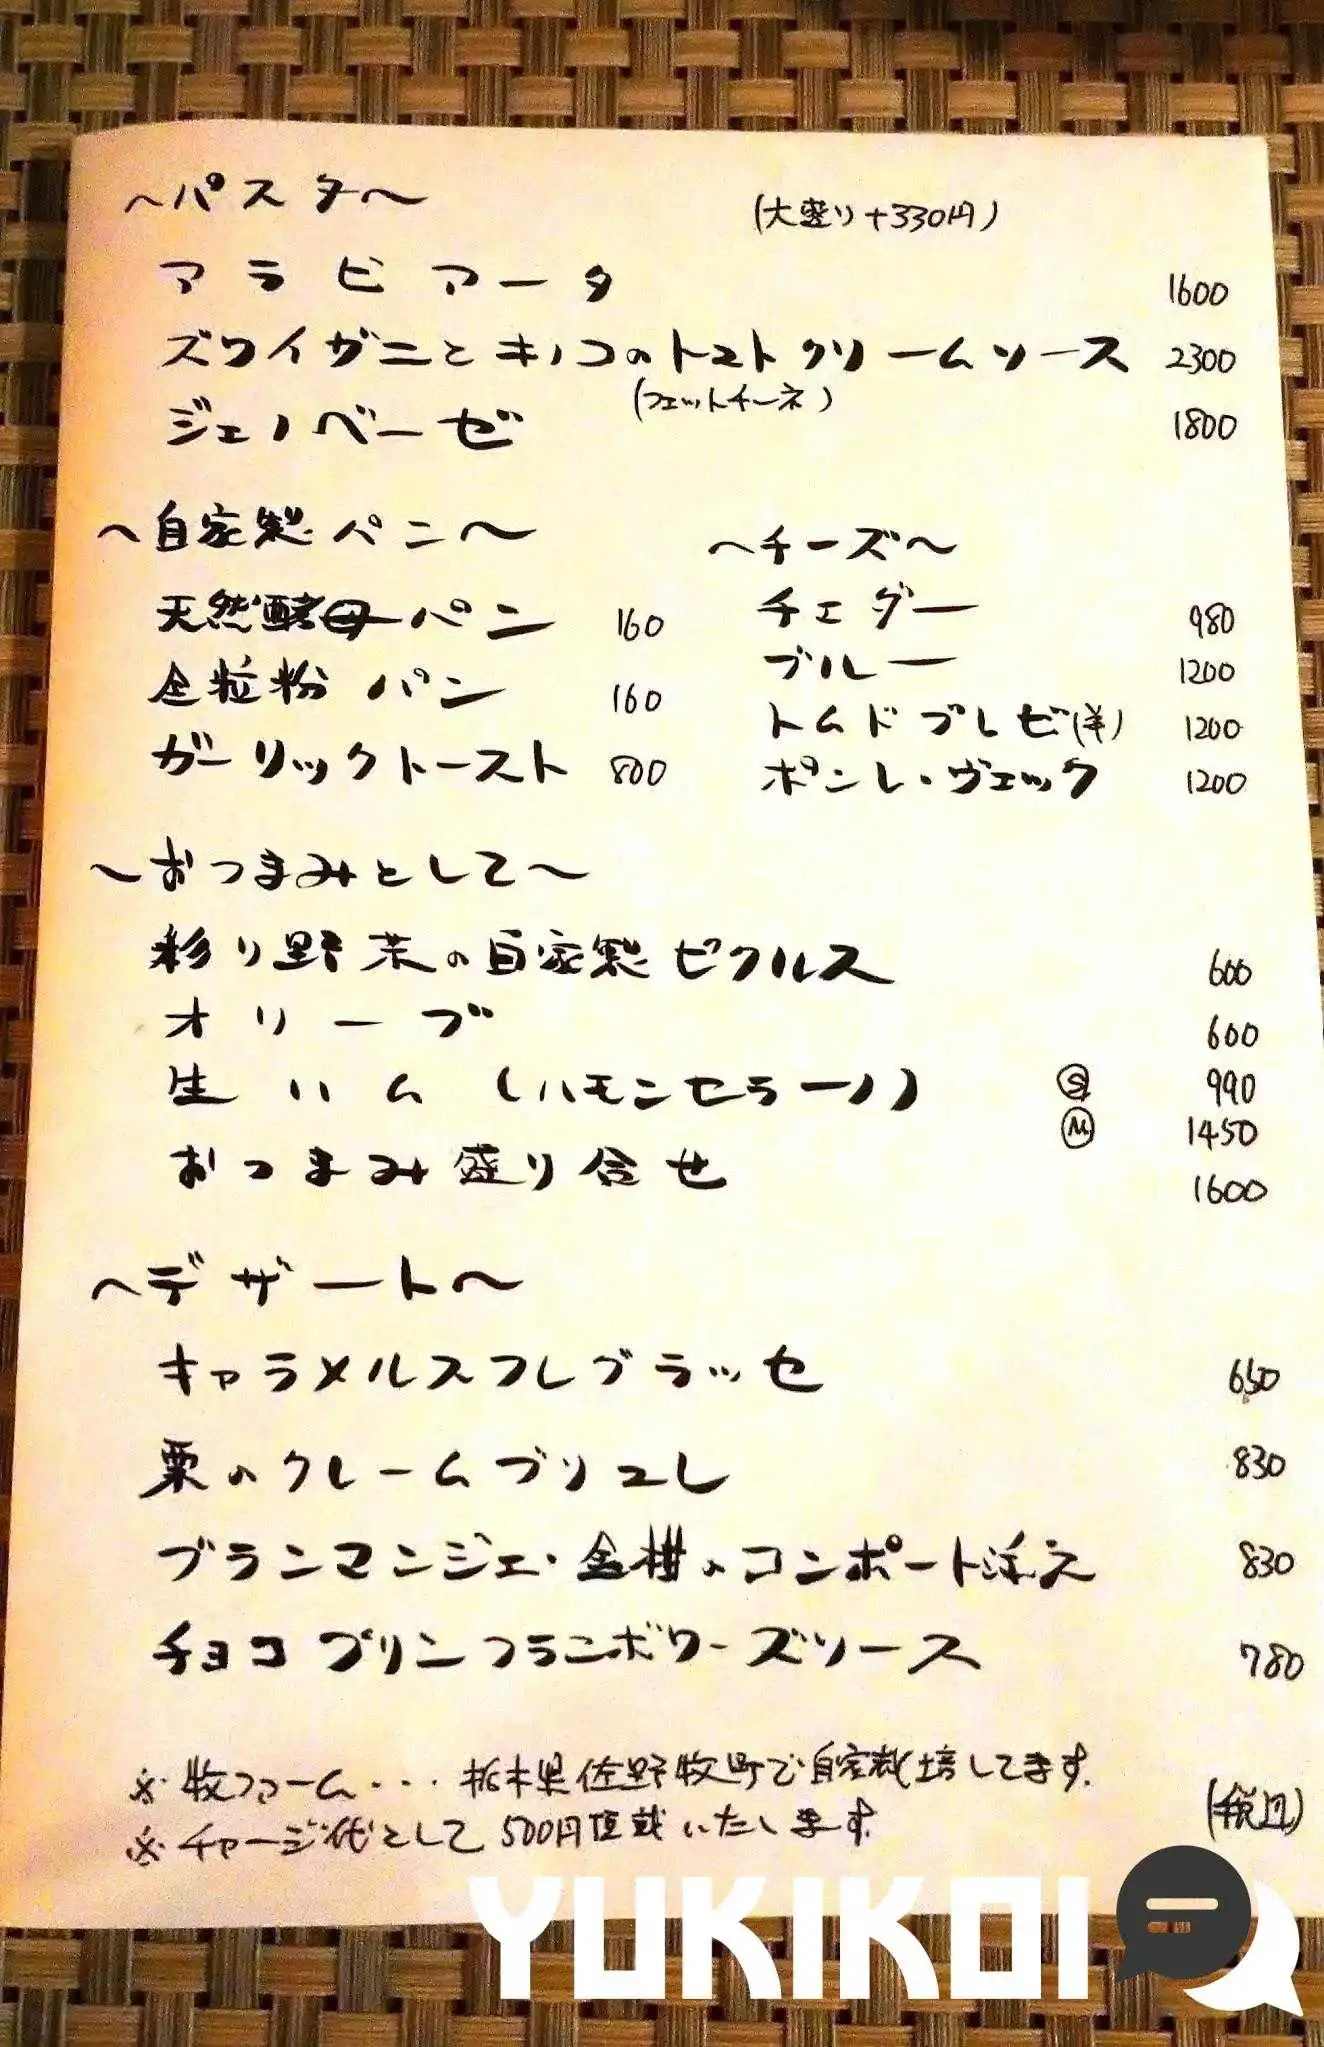 ～パスタ～ (大盛り+330円)
アラビアータ 1600
ズワイガニとキノコのトマトクリームソース 2300
(フェットチーネ)
ジェノベーゼ 1800
～自家製パン～
天然酵母パン 160
全粒粉パン 160
ガーリックトースト 800
～チーズ～
チェダー 980
ブルー 1200
トムドブレビ(羊) 1200
ポンレ・ヴェック 1200
～おつまみとして～
彩り野菜の自家製ピクルス 600
オリーブ 600
生ハム(ハモンセラーノ) Ⓢ 990
Ⓜ 1450
おつまみ盛り合せ 1600
～デザート～
キャラメルスフレグラッセ 650
栗のクレームブリュレ 830
ブランマンジェ・金柑のコンポート添え 830
チョコプリンフランボワーズソース 780
※牧ファーム・・・栃木県佐野牧町で自家栽培してます。
※チャージ代として500円頂戴いたします。
(税込)
YUKIKOI